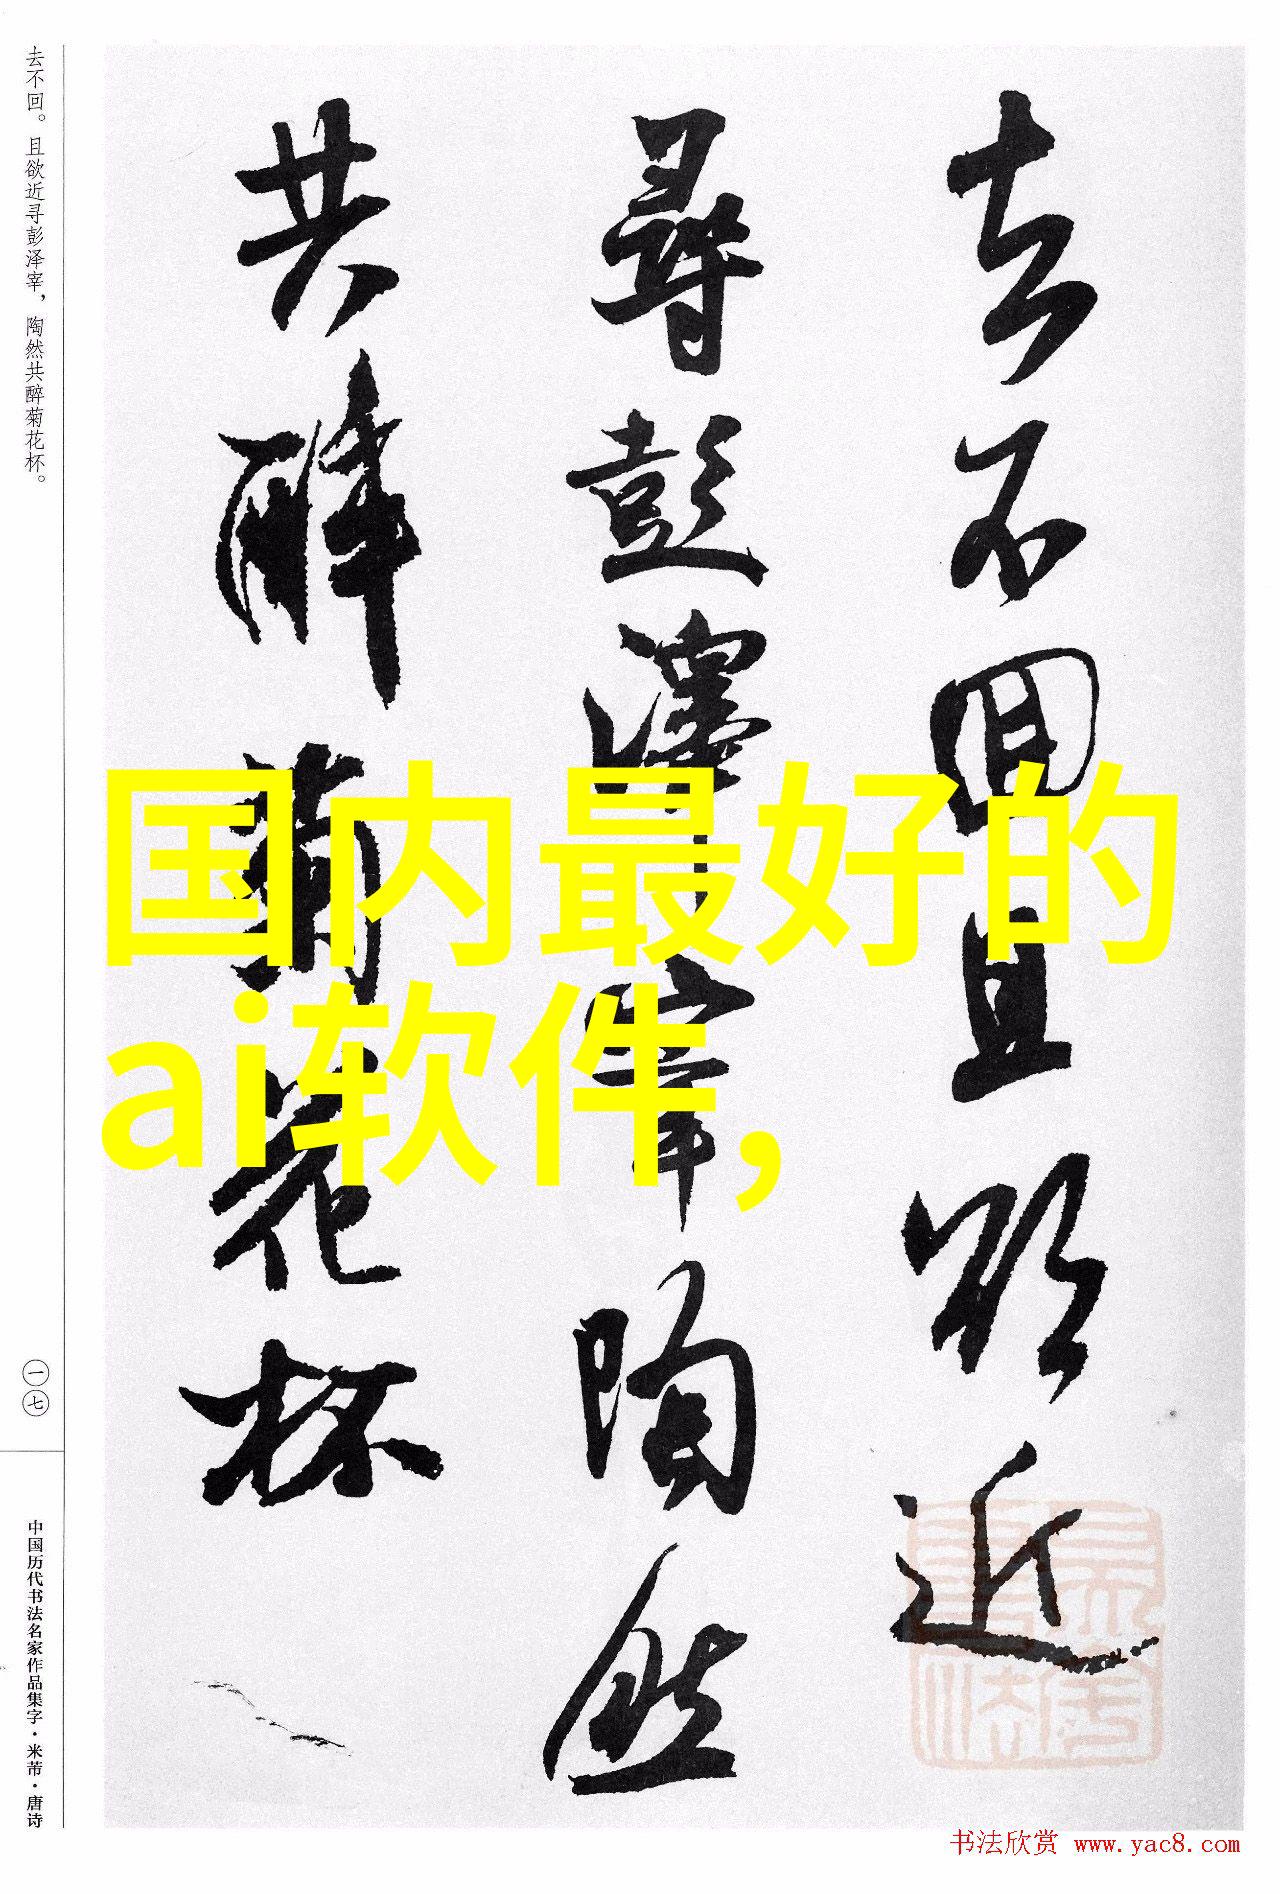 去不回。且欲近寻彭泽宰，陶然共醉菊花杯。
一七
中国历代书法名家作品集字·米芾·唐诗
去不回且欲近
尋彭澤宰陶然
共醉菊花杯
国内最好的
ai软件,
书法欣赏 www.yac8.com